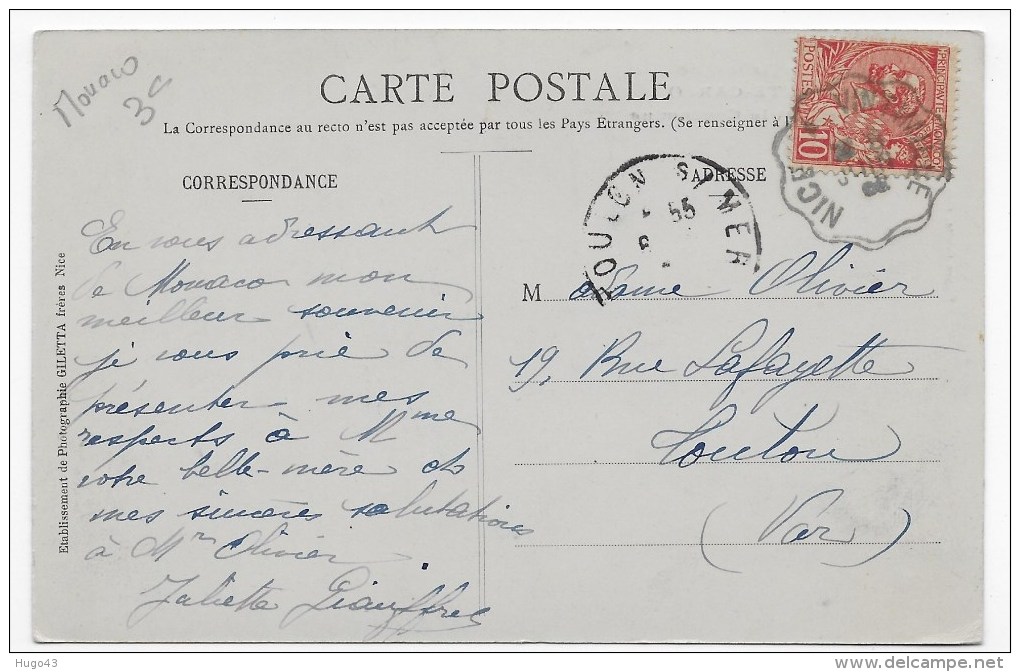 Monaco
3c
CARTE POSTALE
La Correspondance au recto n'est pas acceptée par tous les Pays Etrangers. (Se renseigner à l
CORRESPONDANCE
En vous adressant
de Monaco mon
meilleur souvenir
je vous prie de
présenter mes
respects à Mme
votre belle-mère et
mes sincères salutations
à Mr Olivier
Juliette Giauffret
ADRESSE
Madame Olivier
19, Rue Lafayette
Toulon
(Var)
POSTES
PRINCIPAUTE
MONACO
10
NICE
TOULON S/ MER
55
Etablissement de Photographie GILETTA frères Nice
Hugo43
delcampe.net